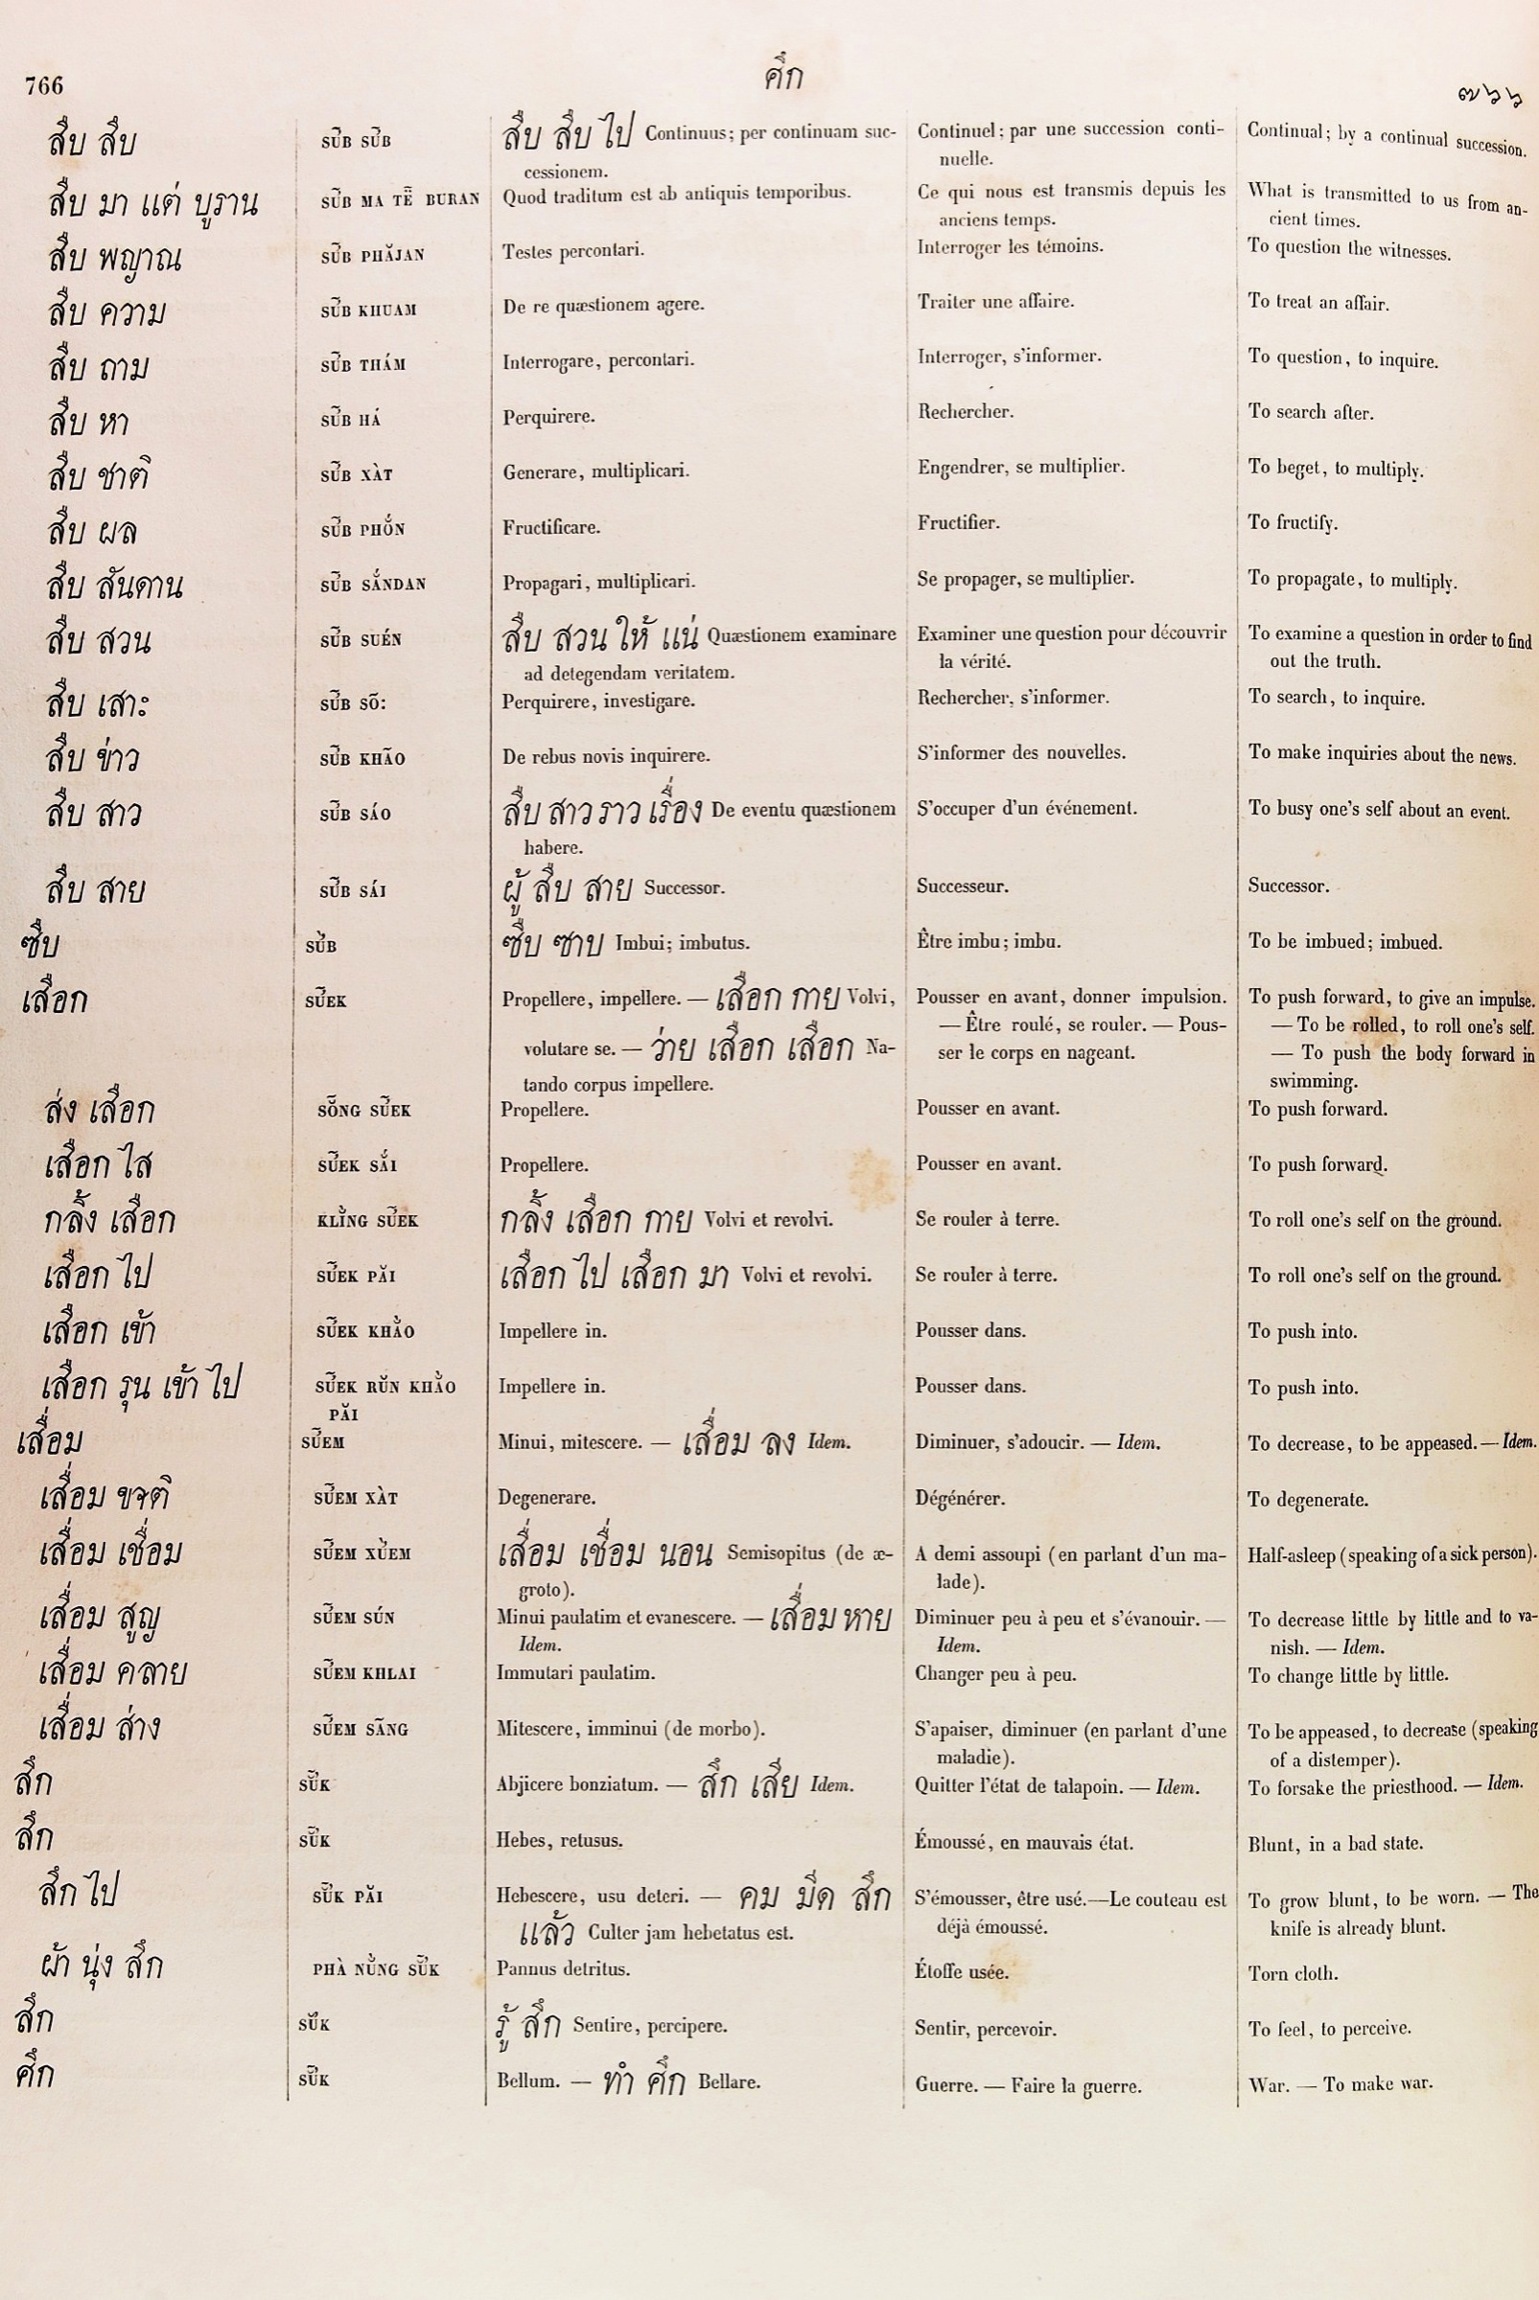 766
ศึก
๗๖๖
สืบ สืบ SU̇̃B SU̇̃B สืบ สืบ ไป Continuus; per continuam suc- Continuel; par une succession conti- Continual; by a continual succession.
cessionem. nuelle.
สืบ มา แต่ บูราน SU̇̃B MA TẼ BURAN Quod traditum est ab antiquis temporibus. Ce qui nous est transmis depuis les What is transmitted to us from an-
anciens temps. cient times.
สืบ พญาณ SU̇̃B PHĂJAN Testes percontari. Interroger les témoins. To question the witnesses.
สืบ ความ SU̇̃B KHUAM De re quæstionem agere. Traiter une affaire. To treat an affair.
สืบ ถาม SU̇̃B THÁM Interrogare, percontari. Interroger, s'informer. To question, to inquire.
สืบ หา SU̇̃B HÁ Perquirere. Rechercher. To search after.
สืบ ชาติ SU̇̃B XÀT Generare, multiplicari. Engendrer, se multiplier. To beget, to multiply.
สืบ ผล SU̇̃B PHŎ́N Fructificare. Fructifier. To fructify.
สืบ สันดาน SU̇̃B SẮNDAN Propagari, multiplicari. Se propager, se multiplier. To propagate, to multiply.
สืบ สวน SU̇̃B SUÉN สืบ สวน ให้ แน่ Quæstionem examinare Examiner une question pour découvrir To examine a question in order to find
ad detegendam veritatem. la vérité. out the truth.
สืบ เสาะ SU̇̃B SÕ: Perquirere, investigare. Rechercher, s'informer. To search, to inquire.
สืบ ข่าว SU̇̃B KHÃO De rebus novis inquirere. S'informer des nouvelles. To make inquiries about the news.
สืบ สาว SU̇̃B SÁO สืบ สาว ราว เรื่อง De eventu quæstionem S'occuper d'un événement. To busy one's self about an event.
habere.
สืบ สาย SU̇̃B SÁI ผู้ สืบ สาย Successor. Successeur. Successor.
ซืบ SU̇̀B ซืบ ซาบ Imbui; imbutus. Être imbu; imbu. To be imbued; imbued.
เสือก SU̇̃EK Propellere, impellere. — เสือก กาย Volvi, Pousser en avant, donner impulsion. To push forward, to give an impulse.
— Être roulé, se rouler. — Pous- — To be rolled, to roll one's self.
volutare se. — ว่าย เสือก เสือก Na- ser le corps en nageant. — To push the body forward in
tando corpus impellere. swimming.
ส่ง เสือก SÕ̆NG SU̇̃EK Propellere. Pousser en avant. To push forward.
เสือก ไส SU̇̃EK SẮI Propellere. Pousser en avant. To push forward.
กลิ้ง เสือก KLĬ̀NG SU̇̃EK กลิ้ง เสือก กาย Volvi et revolvi. Se rouler à terre. To roll one's self on the ground.
เสือก ไป SU̇̃EK PĂI เสือก ไป เสือก มา Volvi et revolvi. Se rouler à terre. To roll one's self on the ground.
เสือก เข้า SU̇̃EK KHẰO Impellere in. Pousser dans. To push into.
เสือก รุน เข้า ไป SU̇̃EK RŬN KHẰO Impellere in. Pousser dans. To push into.
PĂI
เสื่อม SU̇̃EM Minui, mitescere. — เสื่อม ลง Idem. Diminuer, s'adoucir. — Idem. To decrease, to be appeased. — Idem.
เสื่อม ชาติ SU̇̃EM XÀT Degenerare. Dégénérer. To degenerate.
เสื่อม เชื่อม SU̇̃EM XU̇̀EM เสื่อม เชื่อม นอน Semisopitus (de æ- A demi assoupi (en parlant d'un ma- Half-asleep (speaking of a sick person).
groto). lade).
เสื่อม สูญ SU̇̃EM SÚN Minui paulatim et evanescere. — เสื่อม หาย Diminuer peu à peu et s'évanouir. — To decrease little by little and to va-
Idem. Idem. nish. — Idem.
เสื่อม คลาย SU̇̃EM KHLAI Immutari paulatim. Changer peu à peu. To change little by little.
เสื่อม ส่าง SU̇̃EM SÃNG Mitescere, imminui (de morbo). S'apaiser, diminuer (en parlant d'une To be appeased, to decrease (speaking
maladie). of a distemper).
สึก SU̇̆̃K Abjicere bonziatum. — สึก เสีย Idem. Quitter l'état de talapoin. — Idem. To forsake the priesthood. — Idem.
สึก SU̇̆̃K Hebes, retusus. Émoussé, en mauvais état. Blunt, in a bad state.
สึก ไป SU̇̆̃K PĂI Hebescere, usu deteri. — คม มีด สึก S'émousser, être usé.—Le couteau est To grow blunt, to be worn. — The
แล้ว Culter jam hebetatus est. déjà émoussé. knife is already blunt.
ผ้า นุ่ง สึก PHÀ NŬ̀NG SU̇̆̃K Pannus detritus. Étoffe usée. Torn cloth.
สึก SU̇̆K รู้ สึก Sentire, percipere. Sentir, percevoir. To feel, to perceive.
ศึก SU̇̆̃K Bellum. — ทำ ศึก Bellare. Guerre. — Faire la guerre. War. — To make war.